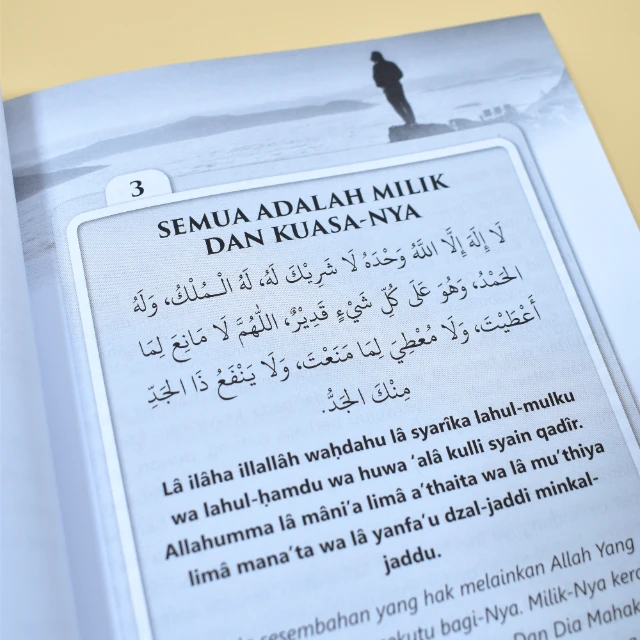 3
SEMUA ADALAH MILIK
DAN KUASA-NYA
لَا إِلَهَ إِلَّا اللَّهُ وَحْدَهُ لَا شَرِيْكَ لَهُ، لَهُ الْـمُلْكُ، وَلَهُ
الْحَمْدُ، وَهُوَ عَلَى كُلِّ شَيْءٍ قَدِيْرٌ، اللَّهُمَّ لَا مَانِعَ لِمَا
أَعْطَيْتَ، وَلَا مُعْطِيَ لِمَا مَنَعْتَ، وَلَا يَنْفَعُ ذَا الْجَدِّ
مِنْكَ الْجَدُّ.
Lâ ilâha illallâh waḥdahu lâ syarîka lahul-mulku
wa lahul-ḥamdu wa huwa ‘alâ kulli syain qadîr.
Allahumma lâ mâni’a limâ a’thaita wa lâ mu’thiya
limâ mana’ta wa lâ yanfa’u dzal-jaddi minkal-
jaddu.
sesembahan yang hak melainkan Allah Yang
bagi-Nya. Milik-Nya
Dan Dia